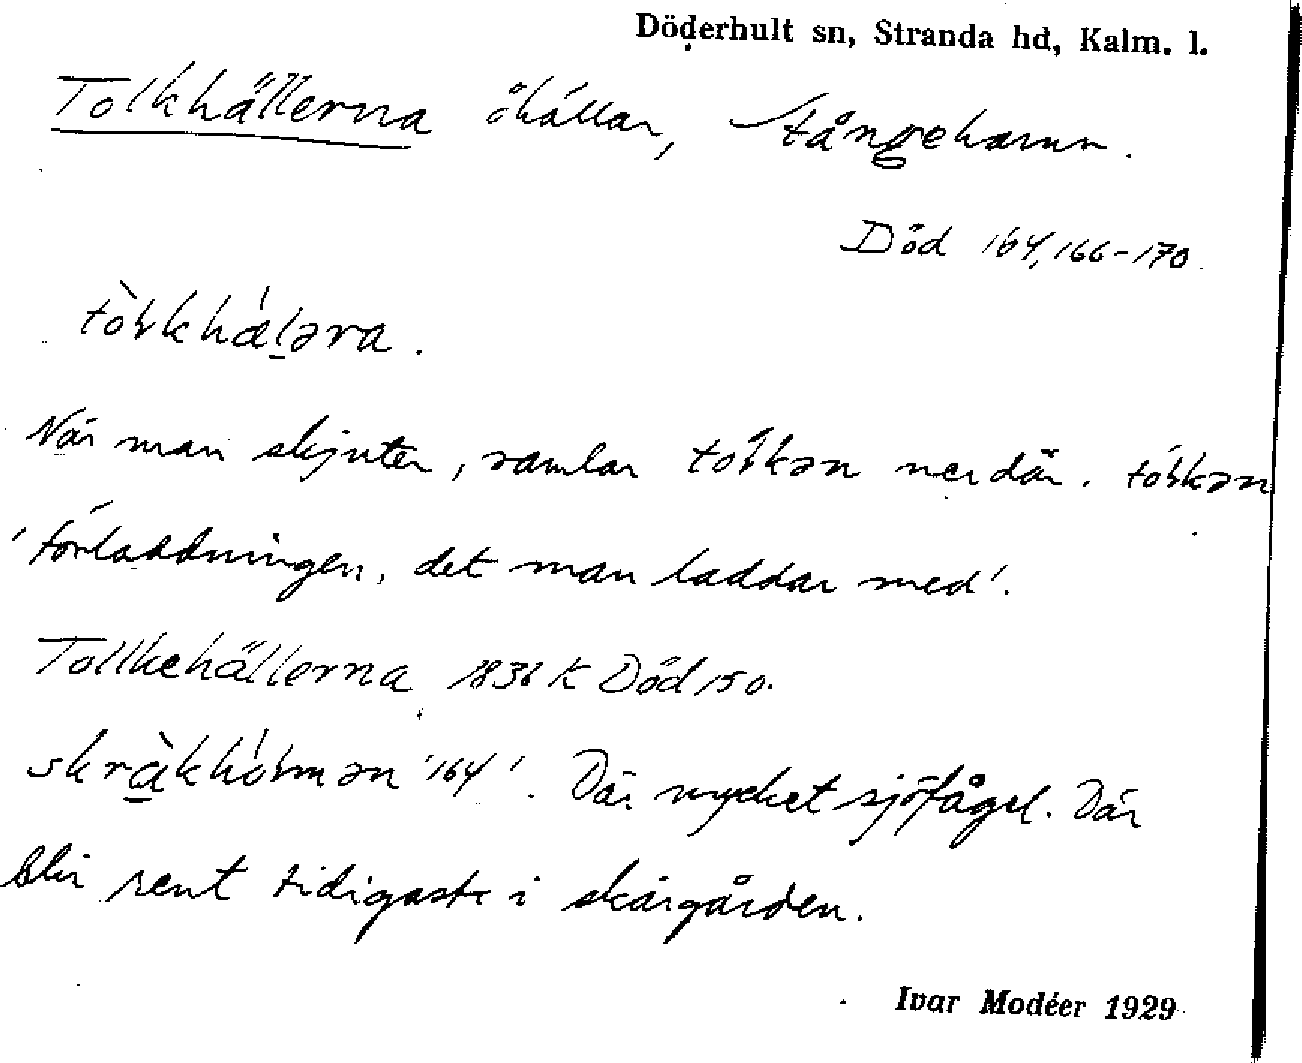 Döderhult sn, Stranda hd, Kalm. l.
Tolkhällerna öhällar, Tångehamn.
Död 164, 166-170
tòɫkhǽlǝra.
När man skjuter, ramlar tóɫkǝn ner där. tóɫkǝn
'förladdningen, det man laddar med'.
Tollkehällerna 1836 K Död 150.
skræ̀khóɫmǝn '164'. Där mycket sjöfågel. Där
blir rent tidigaste i skärgården.
Ivar Modéer 1929